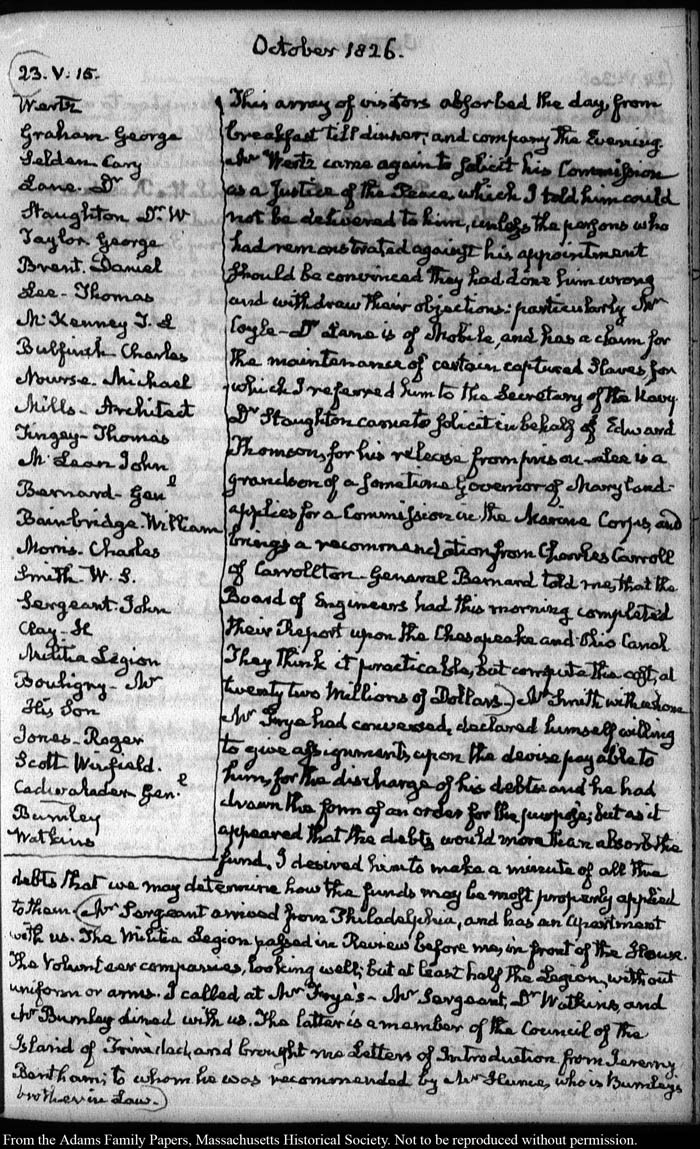 October 1826.
23. V: 15.
Wertz
Graham George
Selden Cary
Lane. Dr
Staughton Dr. W
Taylor George
Brent. Daniel
Lee - Thomas
McKenney T. L
Bulfinch Charles
Nourse. Michael
Mills - Architect
Tingey - Thomas
McLean John
Bernard - Genl
Bainbridge. William
Morris. Charles
Smith W. S.
Sergeant. John
Clay - H
Militia Legion
Bouligny - Mr
His Son
Jones - Roger
Scott Winfield.
Cadwalader Genl.
Burnley
Watkins
This array of visitors absorbed the day, from
breakfast till dinner, and company the Evening.
Mr Wertz came again to solicit his Commission
as a Justice of the Peace which I told him could
not be delivered to him, unless the persons who
had remonstrated against his appointment
should be convinced they had done him wrong
and withdraw their objections: particularly Mr
Coyle - Dr Lane is of Mobile, and has a claim for
the maintenance of certain captured Slaves for
which I referred him to the Secretary of the Navy.
Dr Staughton came to solicit in behalf of Edward
Thomson, for his release from prison - Lee is a
grandson of a sometime Governor of Maryland:
applies for a Commission in the Marine Corps, and
brings a recommendation from Charles Carroll
of Carrollton - General Bernard told me, that the
Board of Engineers had this morning completed
their Report upon the Chesapeake and Ohio Canal
They think it practicable, but compute the cost, at
twenty two Millions of Dollars.) Mr Smith with whom
Mr Frye had conversed, declared himself willing
to give assignments upon the devise payable to
him, for the discharge of his debts and he had
drawn the form of an order for the purpose; but as it
appeared that the debts would more than absorb the
fund, I desired him to make a minute of all the
debts that we may determine how the funds may be most properly applied
to them. (Mr Sergeant arrived from Philadelphia, and has an apartment
with us. The Militia Legion passed in Review before me, in front of the House.
The Volunteer companies, looking well; but at least half the Legion, without
uniform or arms. I called at Mr Frye's - Mr Sergeant, Dr Watkins, and
Mr Burnley dined with us. The latter is a member of the Council of the
Island of Trinidad, and brought me Letters of Introduction from Jeremy
Bentham; to whom he was recommended by Mr Hume, who is Burnley's
brother in Law.)
From the Adams Family Papers, Massachusetts Historical Society. Not to be reproduced without permission.